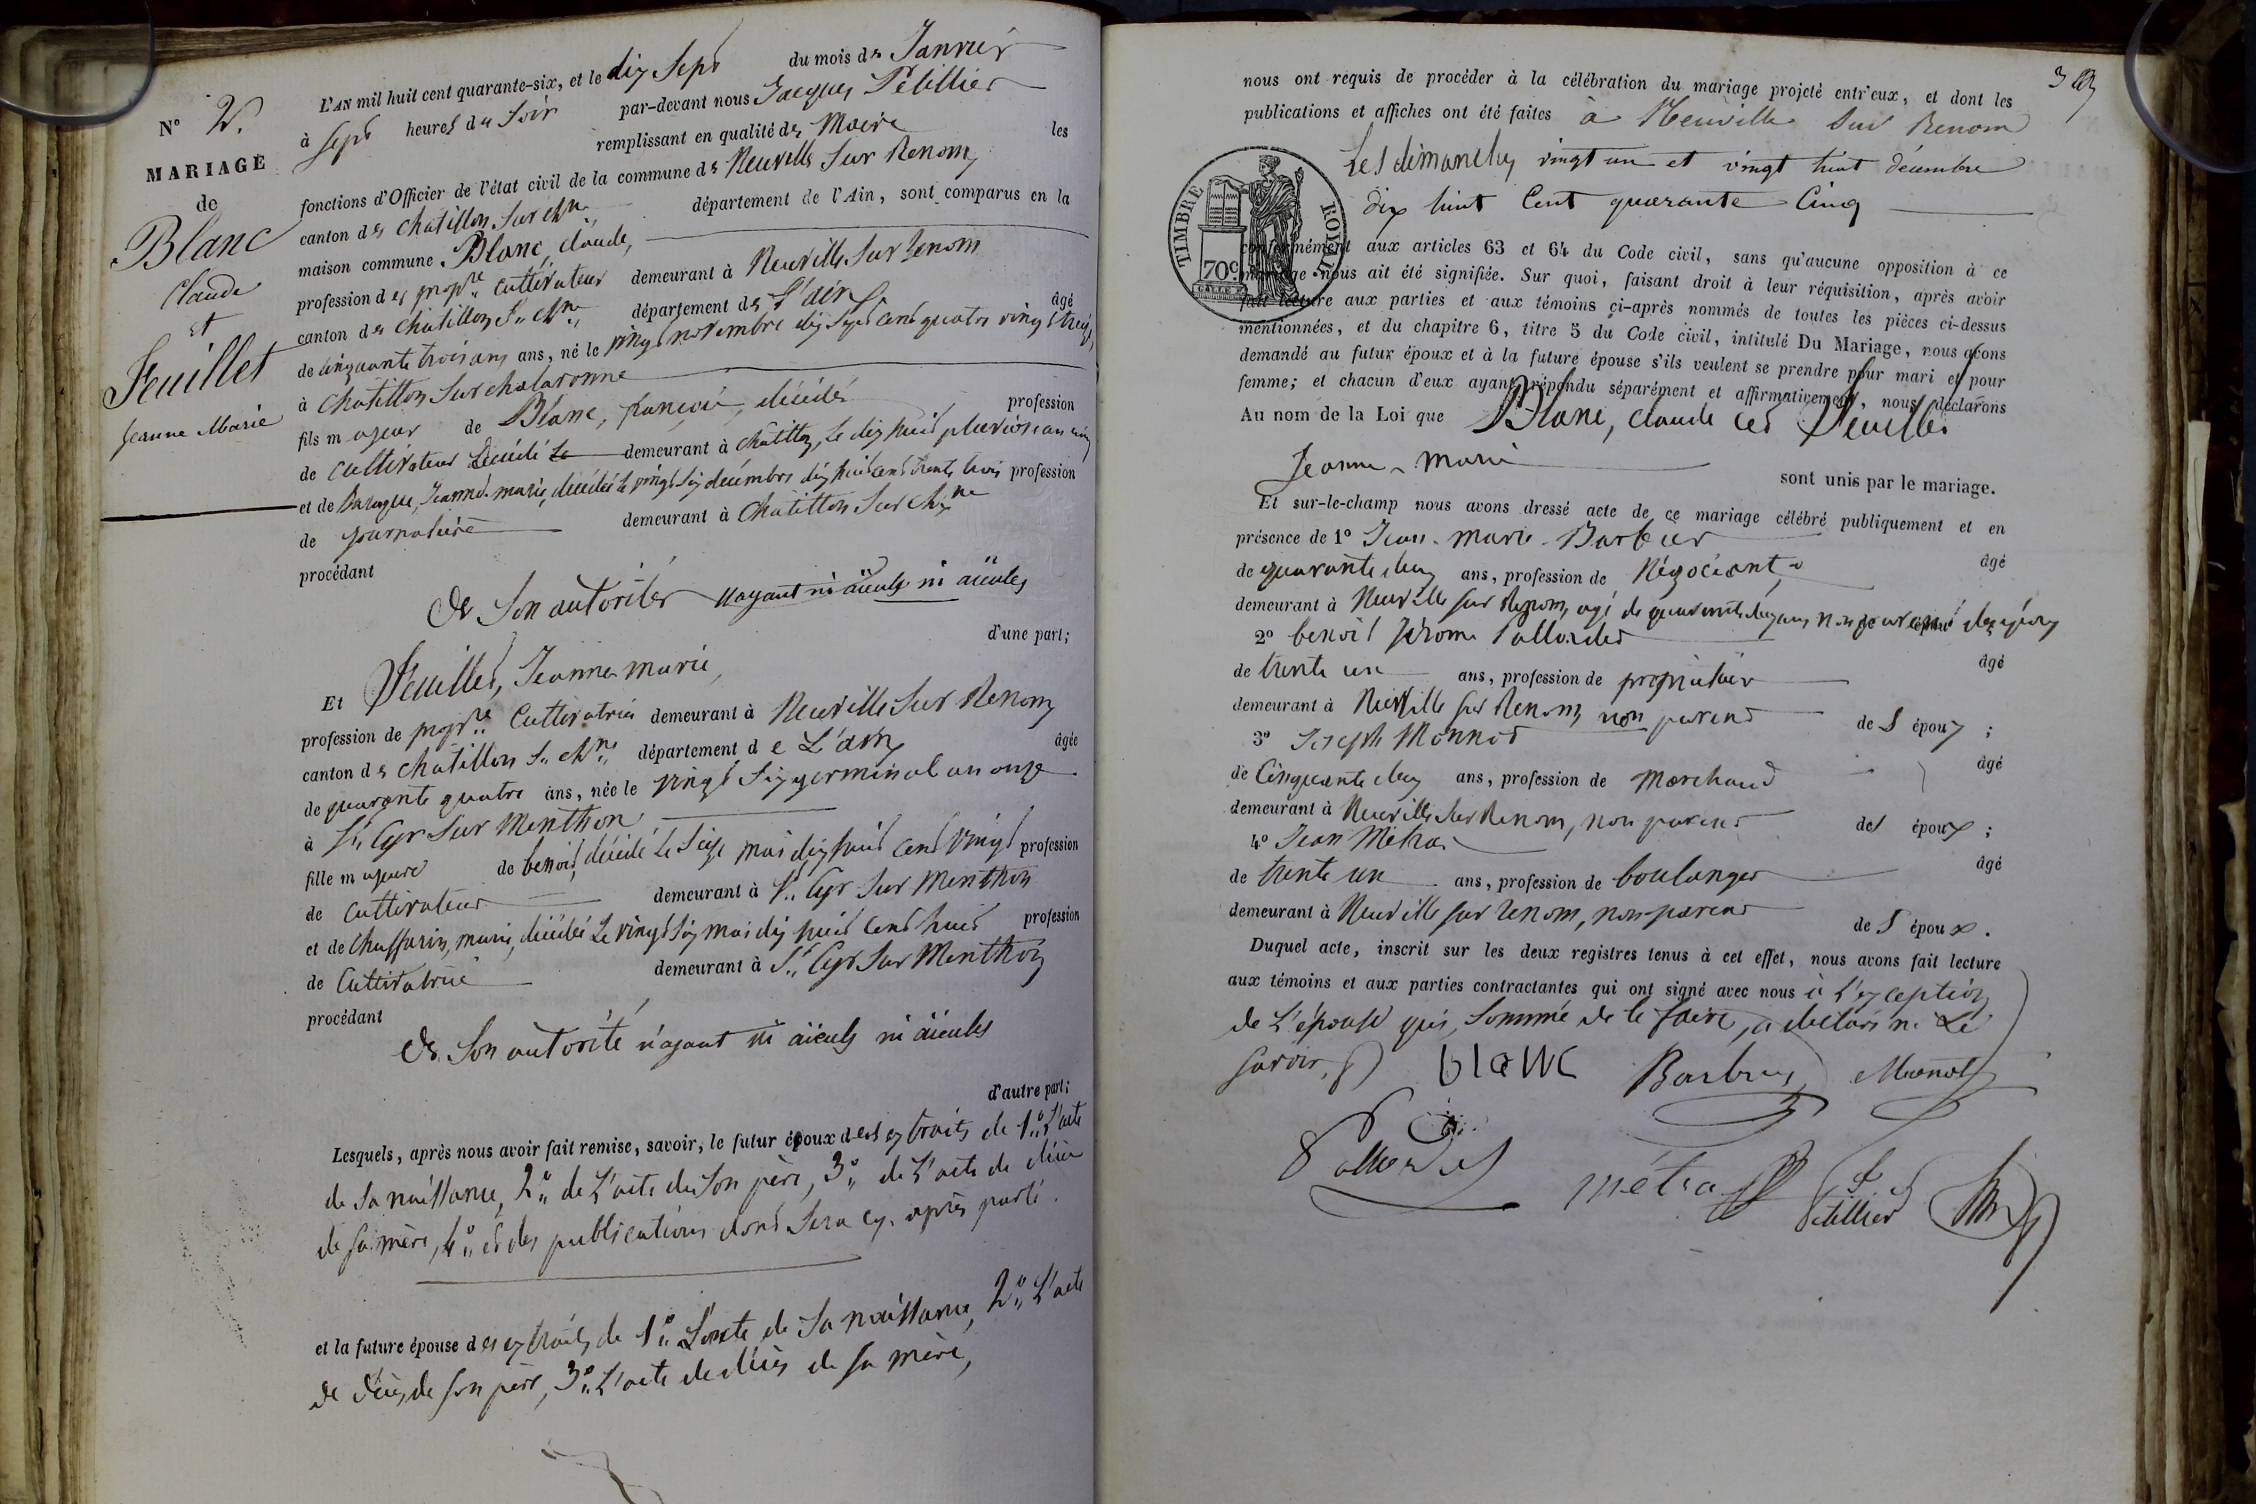 N° 2.
MARIAGE
de
Blanc
Claude
et
Feuillet
Jeanne Marie
L'AN mil huit cent quarante-six, et le dix sept du mois de Janvier
à sept heures du soir par-devant nous Jacques Pelillier
remplissant en qualité de Maire les
fonctions d'Officier de l'état civil de la commune de Neuville sur Renom
canton de chatillon sur chne département de l'Ain, sont comparus en la
maison commune Blanc, claude,
profession de propre cultivateur demeurant à Neuville sur Renom
canton de chatillon s. chne département de L'ain âgé
de cinquante trois ans ans, né le vingt novembre dix sept cent quatre vingt treize,
à chatillon sur chalaronne
fils majeur de Blanc, françois, décédé profession
de cultivateur décédé le demeurant à chatillon, le dix huit pluviose an cinq
et de Jeanne-marie, décédée le vingt six décembre dix huit cent trente trois profession
de journalière demeurant à chatillon sur chne
procédant
de son autorité n'ayant ni aïeuls ni aïeules
d'une part;
Et Feuillet, Jeanne marie,
profession de propre cultivatrice demeurant à Neuville sur Renom
canton de chatillon s. chne département de L'ain âgée
de quarante quatre ans, née le vingt six germinal an onze
à St Cyr sur Menthon
fille majeure de benoit, décédé le seize mai dix huit cent vingt profession
de cultivateur demeurant à St Cyr sur Menthon
et de Chaffurin, marie, décédée le vingt six mai dix huit cent huit profession
de Cultivatrice demeurant à St Cyr sur Menthon
procédant
de son autorité n'ayant ni aïeuls ni aïeules
d'autre part;
Lesquels, après nous avoir fait remise, savoir, le futur époux des extraits de 1° L'acte
de sa naissance, 2° de L'acte de son père, 3° de L'acte de décès
de sa mère, 4° et des publications dont sera cy-après parlé.
et la future épouse des extraits de 1° L'acte de sa naissance, 2° L'acte
de décès de son père, 3° L'acte de décès de sa mère,
nous ont requis de procéder à la célébration du mariage projeté entr'eux, et dont les
publications et affiches ont été faites à Neuville sur Renom
Les dimanches vingt un et vingt huit décembre
dix huit Cent quarante Cinq
TIMBRE ROYAL
70c
conformément aux articles 63 et 64 du Code civil, sans qu'aucune opposition à ce
mariage nous ait été signifiée. Sur quoi, faisant droit à leur réquisition, après avoir
fait lecture aux parties et aux témoins ci-après nommés de toutes les pièces ci-dessus
mentionnées, et du chapitre 6, titre 5 du Code civil, intitulé Du Mariage, nous avons
demandé au futur époux et à la future épouse s'ils veulent se prendre pour mari et pour
femme; et chacun d'eux ayant répondu séparément et affirmativement, nous déclarons
Au nom de la Loi que Blanc, claude et Feuillet
Jeanne-Marie sont unis par le mariage.
Et sur-le-champ nous avons dressé acte de ce mariage célébré publiquement et en
présence de 1° Jean-marie-Barbier âgé
de quarante deux ans, profession de Négociant,
demeurant à Neuville sur Renom, agé de quarante deux ans non parent des époux
2° benoit Jérome Pallordet âgé
de trente un ans, profession de propriétaire
demeurant à Neuville sur Renom, non parent des époux ;
3° Joseph Monnot âgé
de Cinquante deux ans, profession de Marchand
demeurant à Neuville sur Renom, non parent des époux ;
4° Jean Métras âgé
de trente un ans, profession de boulanger
demeurant à Neuville sur Renom, non parent des époux.
Duquel acte, inscrit sur les deux registres tenus à cet effet, nous avons fait lecture
aux témoins et aux parties contractantes qui ont signé avec nous à l'exception
de L'épouse qui, sommé de le faire, a déclaré ne Le
savoir.
blanc Barbier Monnot
métras Pelillier